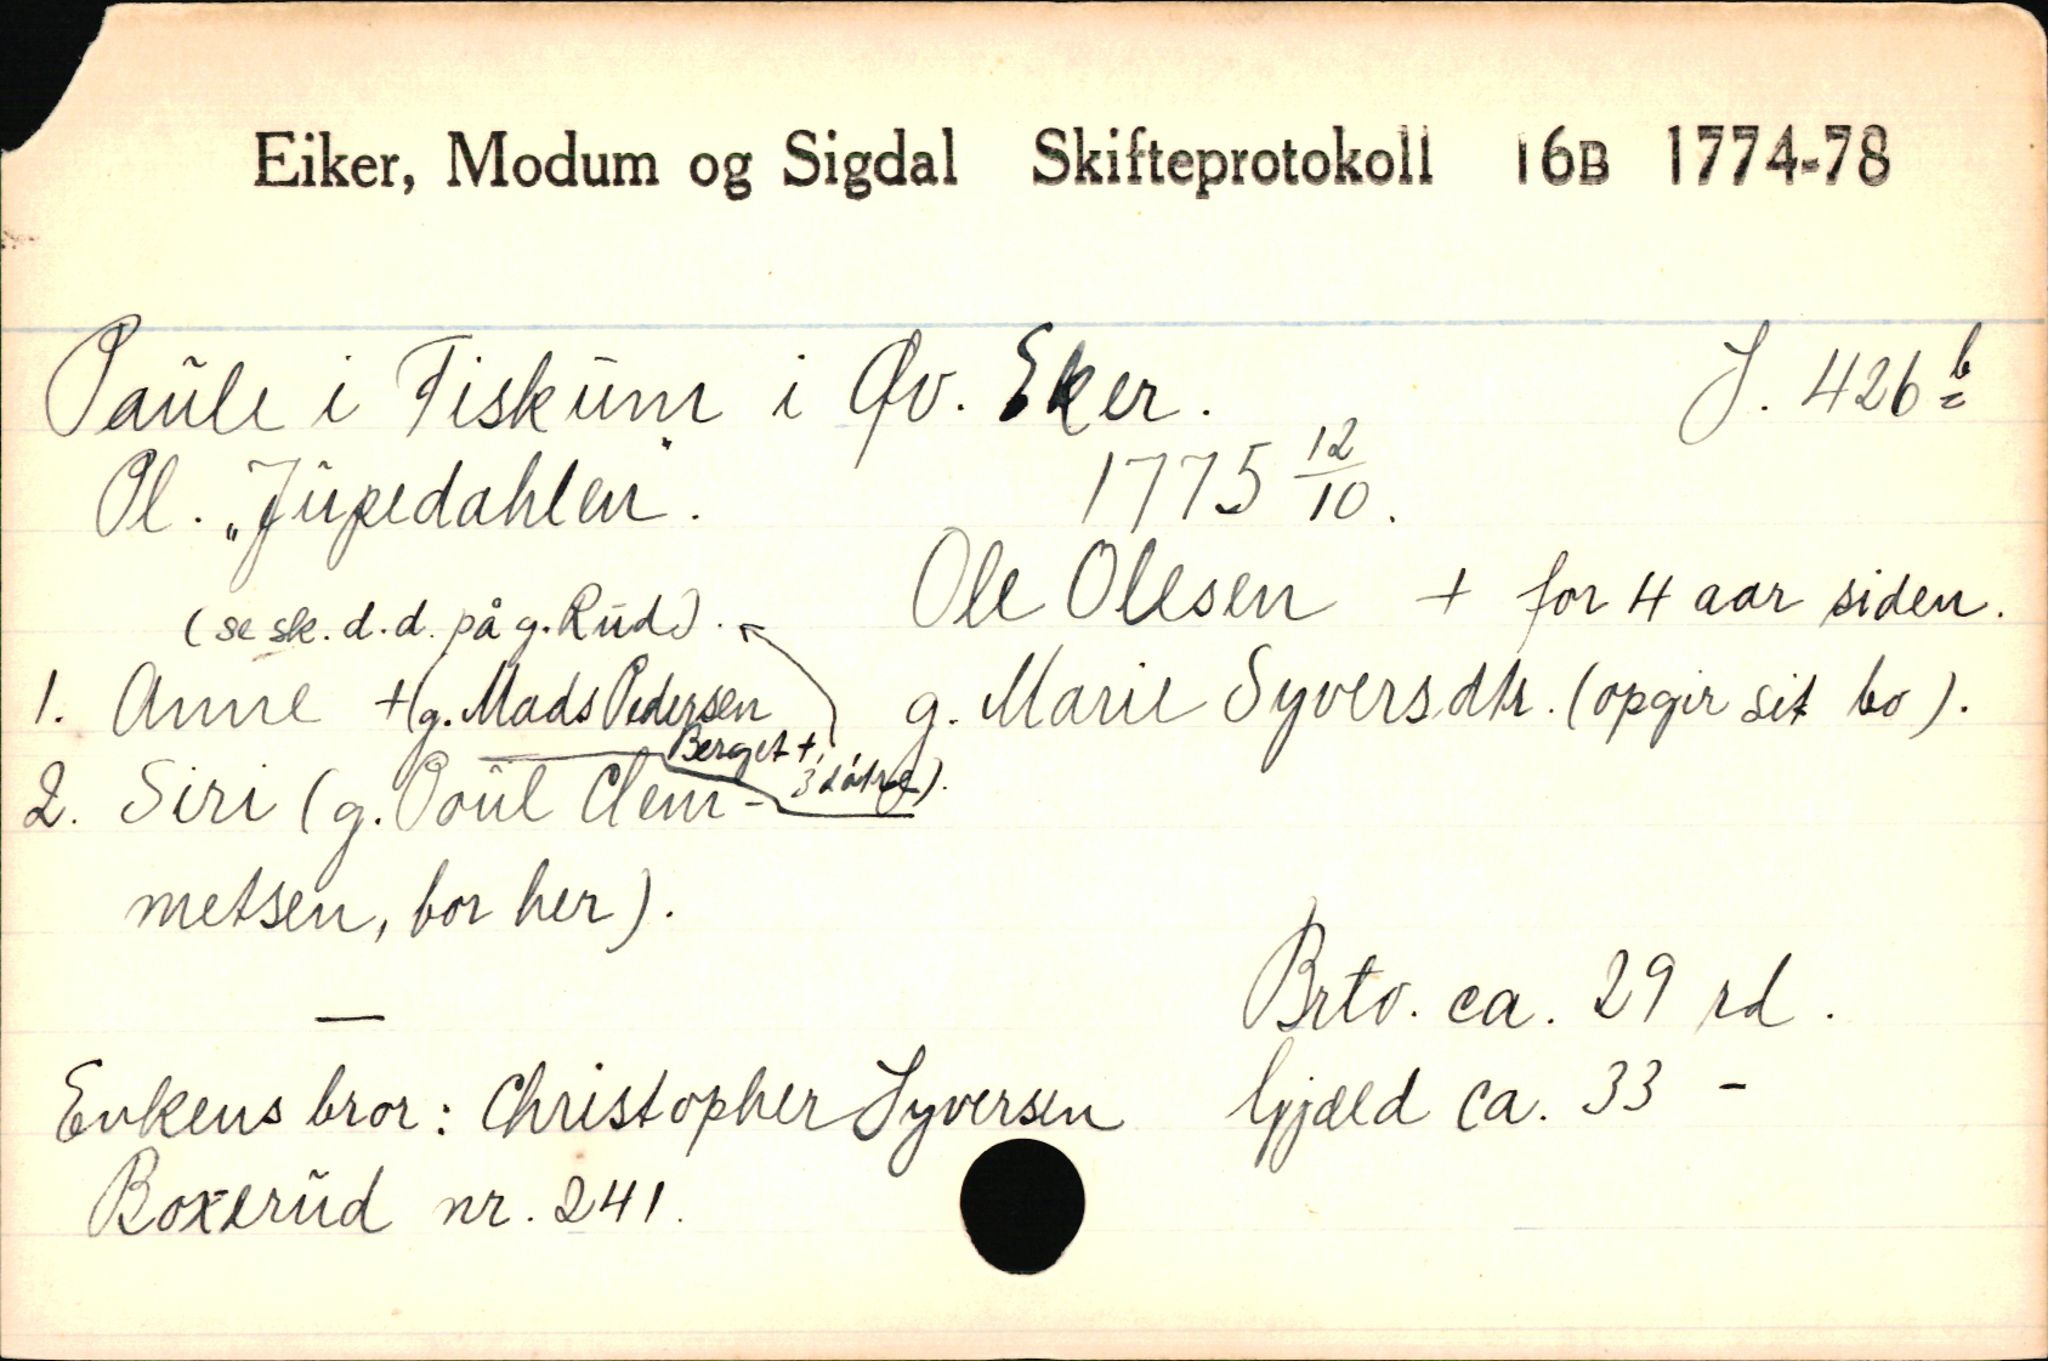 Eiker, Modum og Sigdal Skifteprotokoll 16B 1774-78
Paule i Fiskum i Øv. Eker. S. 426 b
Pl. „Jupedahlen". 1775 12/10.
(se sk. d.d. på g. Rud). Ole Olesen + for 4 aar siden.
1. Anne + (g. Mads Pedersen g. Marie Syversdtr. (opgir sit bo).
Berget +,
3 døtre).
2. Siri (g. Poul Clem-
metsen, bor her).
Brto. ca. 29 rd.
Enkens bror: Christopher Syversen Gjæld ca. 33 -
Boxerud nr. 241.